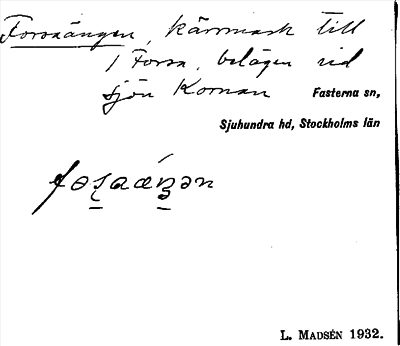 Forsaängen, kärrmark till
1 Forsa, belägen vid
sjön Kornan Fasterna sn,
Sjuhundra hd, Stockholms län
L. MADSÉN 1932.